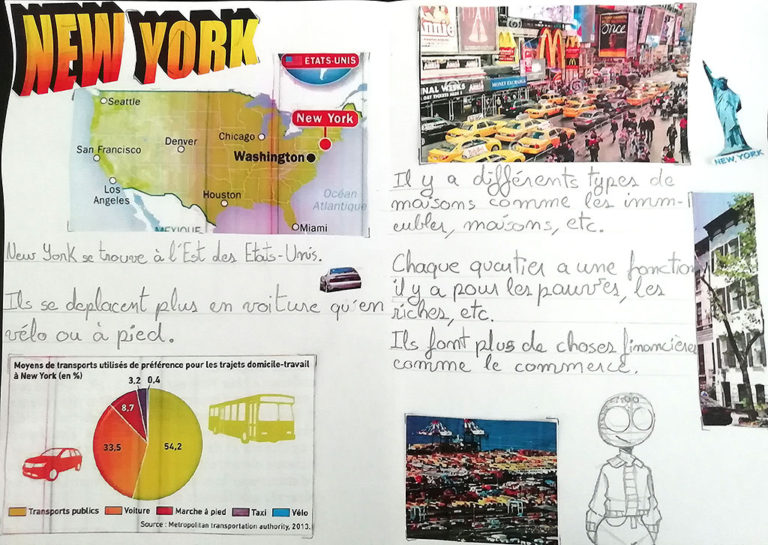 NEW YORK
ÉTATS-UNIS
Seattle
New York
Chicago
Denver
Washington
San Francisco
Los
Angeles
Houston
Océan
Atlantique
MEXIQUE
Miami
New York se trouve à l'Est des Etats-Unis.
Ils se deplacent plus en voiture qu'en
vélo ou à pied.
Moyens de transports utilisés de préférence pour les trajets domicile-travail
à New York (en %)
3,2 0,4
8,7
33,5
54,2
Transports publics Voiture Marche à pied Taxi Vélo
Source : Metropolitan transportation authority, 2013.
once
McDonald's
MONEY EXCHANGE
NEW YORK
Il y a différents types de
maisons comme les imm-
eubles, maisons, etc.
Chaque quartier a une fonction
il y a pour les pauvres, les
riches, etc.
Ils font plus de choses financières
comme le commerce.